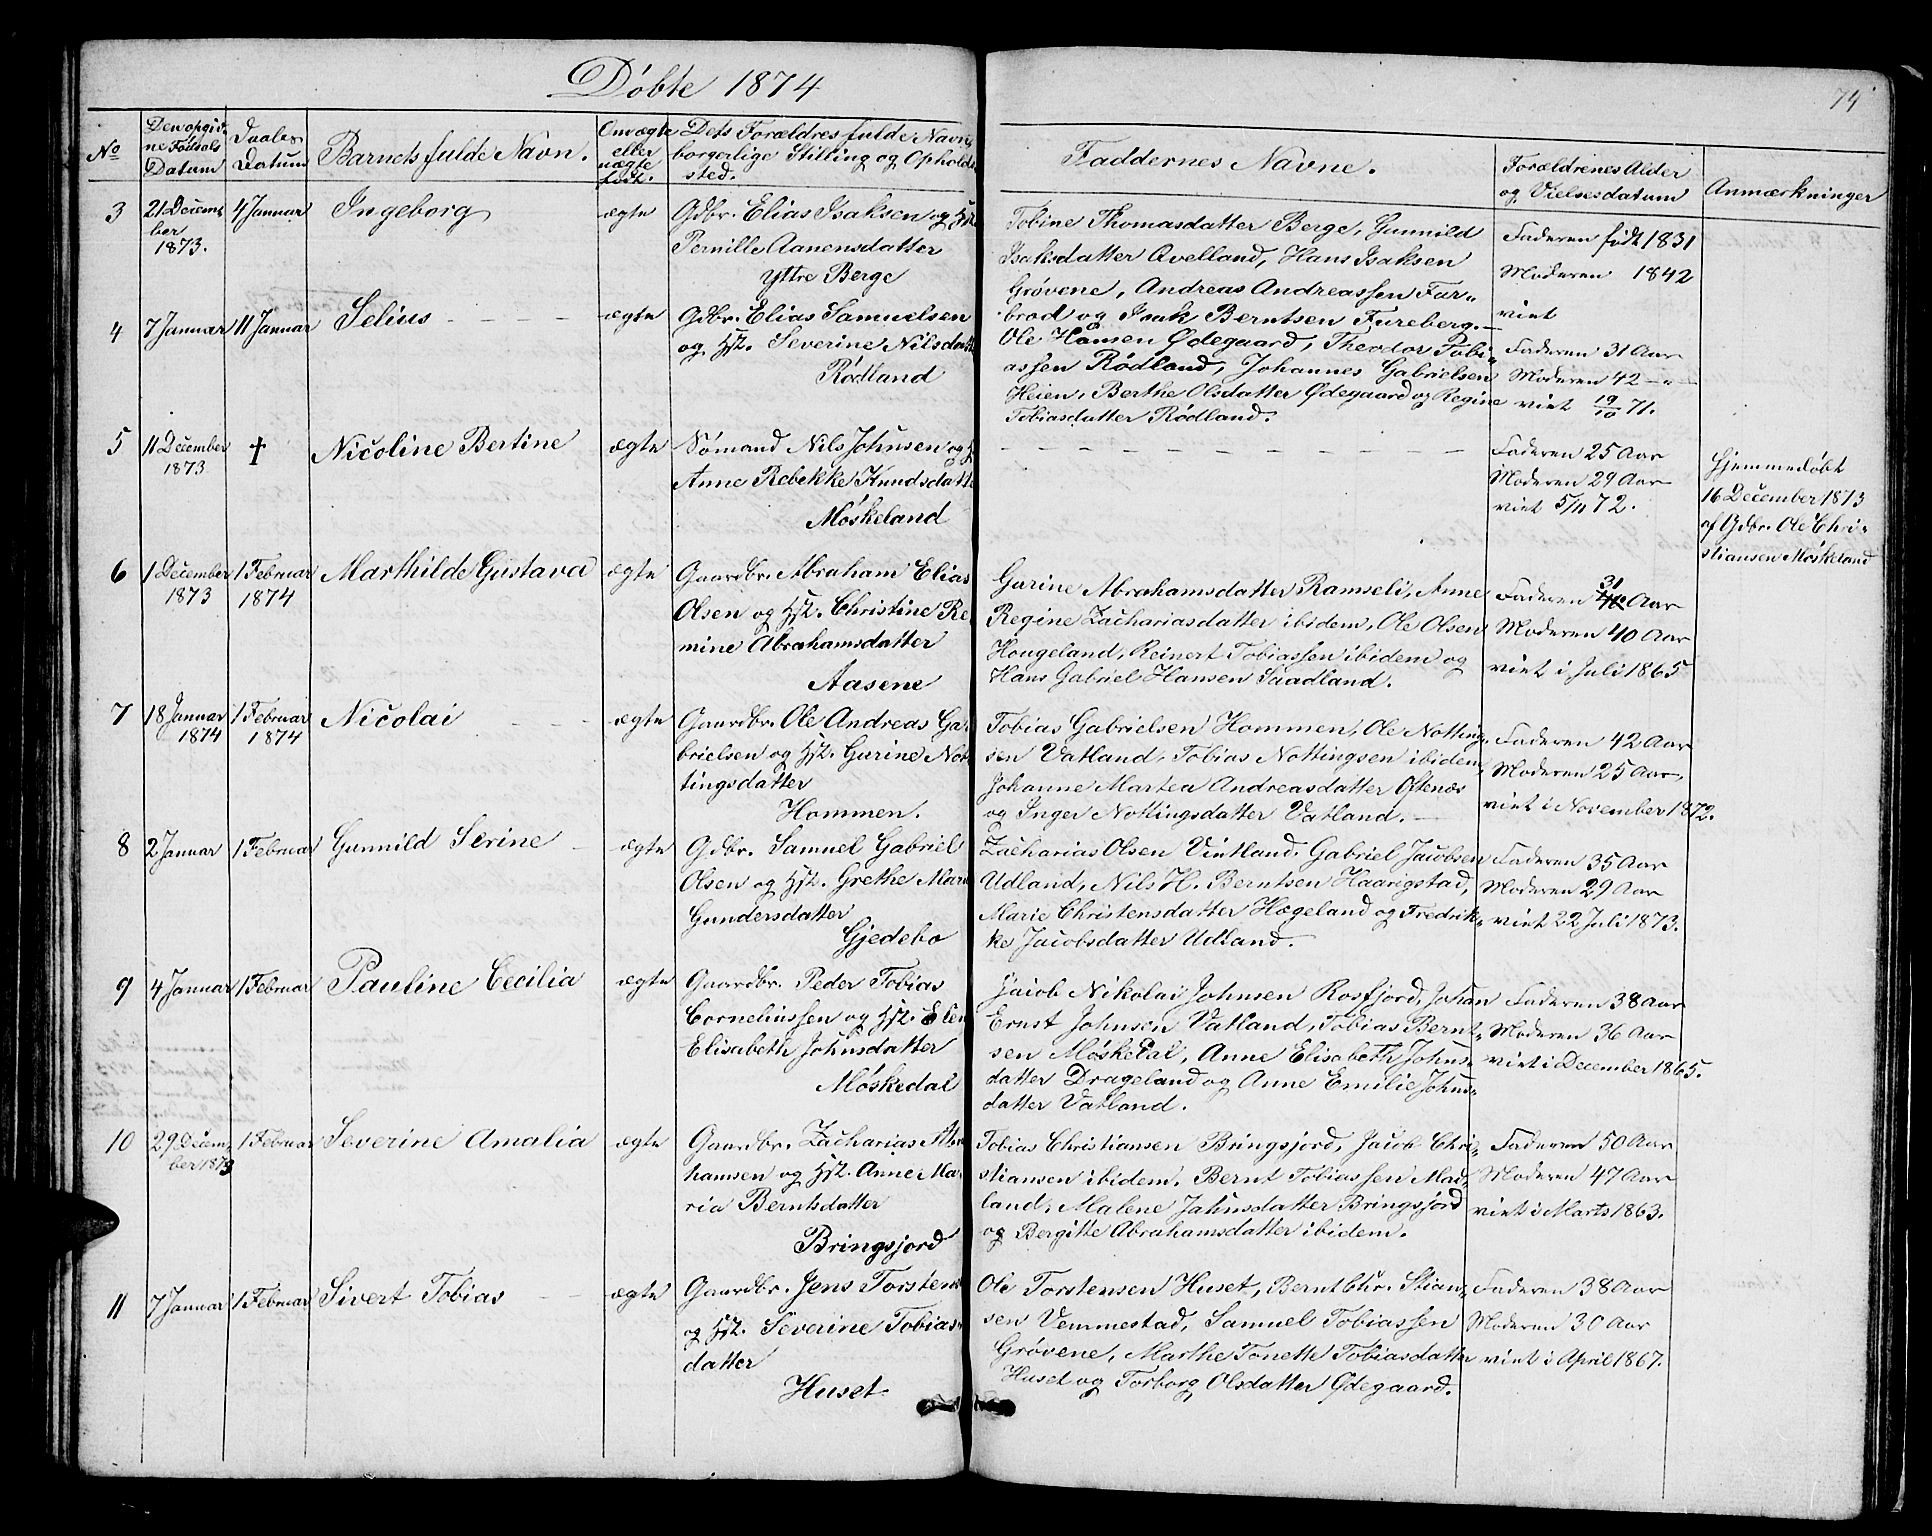 Døbte 1874
74
No
Den opgivne Fødsels Datum
Daabs Datum
Barnets fulde Navn.
Om ægte eller uægte født.
Dets Forældres fulde Navn, borgerlige Stilling og Opholdssted.
Faddernes Navne.
Forældrenes Alder og Vielsesdatum
Anmærkninger
3
21 Decem-
ber
1873.
4 Januar
Ingeborg
ægte
Gdbr. Elias Isaksen og Hst.
Pernille Aanensdatter
Yttre Berge
Tobine Thomasdatter Berge, Gunnild
Isaksdatter Avelland, Hans Isaksen
Grövene, Andreas Andreassen Fur-
brod og Isak Berntsen Fureberg.
Faderen født 1831
Moderen 1842
viet
4
7 Januar
11 Januar
Selius
ægte
Gdbr. Elias Samuelsen
og Hst. Severine Nilsdatt
Rödland
Ole Hansen Ødegaard, Theodor Tobi-
assen Rödland, Johannes Gabrielsen
Heien, Berthe Olsdatter Ødegaard og Regine
Tobiasdatter Rödland.
Faderen 31 Aar
Moderen 42 — " —
viet 19/10 71.
5
11 December
1873
†
Nicoline Bertine
ægte
Sømand Nils Johnsen og H
Anne Rebekke Knudsdatt
Møskeland
Faderen 25 Aar
Moderen 29 Aar
viet 5/11 72.
Hjemmedøbt
16 December 1873
af Gdbr. Ole Chri-
stiansen Møskeland
6
1 December
1873
1 Februar
1874
Marthilde Gustava
ægte
Gaardbr. Abraham Elias
Olsen og Hst. Christine Re
mine Abrahamsdatter
Aasene
Gurine Abrahamsdatter Ramsli, Anne
Regine Zachariasdatter ibidem, Ole Olsen
Hougeland, Reinert Tobiassen ibidem og
Hans Gabriel Hansen Saadland.
Faderen 31 Aar
Moderen 40 Aar
viet i Juli 1865
7
18 Januar
1874
1 Februar
1874
Nicolai
ægte
Gaardbr. Ole Andreas Ga
brielsen og Hst. Gurine Not
tingsdatter
Hommen.
Tobias Gabrielsen Hommen, Ole Notting-
sen Vatland, Tobias Nottingsen ibidem,
Johanne Martea Andreasdatter Oftenæs
og Inger Nottingsdatter Vatland.
Faderen 42 Aar
Moderen 25 Aar,
viet i November 1872.
8
2 Januar
1 Februar
Gunnild Serine
ægte
Gdbr. Samuel Gabriel
Olsen og Hst. Grethe Mari
Gundersdatter
Gjedebo
Zacharias Olsen Vintland, Gabriel Jacobsen
Udland, Nils H. Berntsen Haarigstad,
Marie Christensdatter Hægeland og Fredrik-
ke Jacobsdatter Udland.
Faderen 35 Aar
Moderen 29 Aar
viet 22 Juli 1873.
9
4 Januar
1 Februar
Pauline Cecilia
ægte
Gaardbr. Peder Tobias
Corneliussen og Hst. Elen
Elisabeth Johnsdatter
Møskedal
Jacob Nikolai Johnsen Rosfjord, Johan
Ernst Johnsen Vatland, Tobias Bernt-
sen Møskedal, Anne Elisabeth Johns-
datter Drageland og Anne Emilie Johns-
datter Vatland.
Faderen 38 Aar
Moderen 36 Aar
viet i December 1865.
10
29 Decem-
ber 1873
1 Februar
Severine Amalia
ægte
Gaardbr. Zacharias Abra
hamsen og Hst. Anne Ma-
ria Berntsdatter
Bringsjord
Tobias Christiansen Bringsjord, Jacob Chri-
stiansen ibidem, Bernt Tobiassen Mad-
land, Malene Jahnsdatter Bringsjord
og Bergitte Abrahamsdatter ibidem.
Faderen 50 Aar
Moderen 47 Aar
viet i Marts 1863.
11
7 Januar
1 Februar
Sivert Tobias
ægte
Gaardbr. Jens Torstens
og Hst. Severine Tobias-
datter
Huset
Ole Torstensen Huset, Bernt Chr. Stian-
sen Vemmestad, Samuel Tobiassen
Grövene, Marthe Tonette Tobiasdatter
Huset og Torborg Olsdatter Ødegaard.
Faderen 38 Aar
Moderen 30 Aar
viet i April 1867.